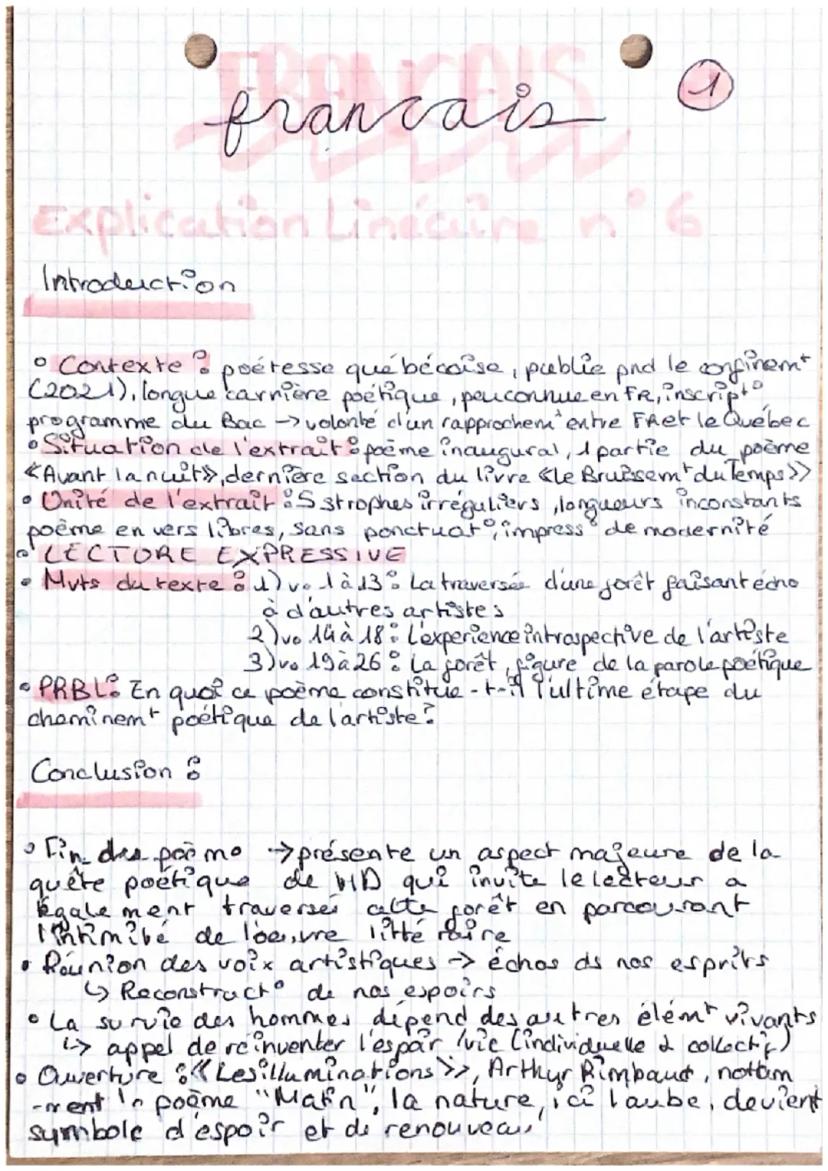 FRANCAIS
francais
1
Explication Linéaire n°6
Introduction
• Contexte : poétesse québécoise, publie pnd le confinemt
(2021), longue carrière poétique, peu connue en FR, inscript°
programme du Bac → volonté d'un rapprochemt entre FR et le Québec
• Situation de l'extrait : poème inaugural, 1 partie du poème
«Avant la nuit», dernière section du livre «le Bruissemt du Temps»
• Unité de l'extrait : 5 strophes irréguliers, longueurs inconstants
poème en vers libres, sans ponctuat°, impress° de modernité
• LECTURE EXPRESSIVE
• Mvts du texte : 1) v. 1 à 13 : La traversée d'une forêt faisant écho
à d'autres artistes
2) v. 14 à 18 : L'experience introspective de l'artiste
3) v. 19 à 26 : La forêt, figure de la parole poétique
• PRBL : En quoi ce poème constitue-t-il l'ultime étape du
cheminemt poétique de l'artiste ?
Conclusion :
• Fin des poème → présente un aspect majeure de la
quête poétique de HD qui invite le lecteur a
également traversé cette forêt en parcourant
l'intimité de l'oeuvre littéraire
• Réunion des voix artistiques → échos ds nos esprits
↳ Reconstruct° de nos espoirs
• La survie des hommes dépend des autres élémt vivants
↳ appel de réinventer l'espoir/vie (individuelle & collectif)
• Ouverture : «Les illuminations», Arthur Rimbaud, notam
-ment le poème "Matin", la nature, ici l'aube, devient
symbole d'espoir et de renouveau